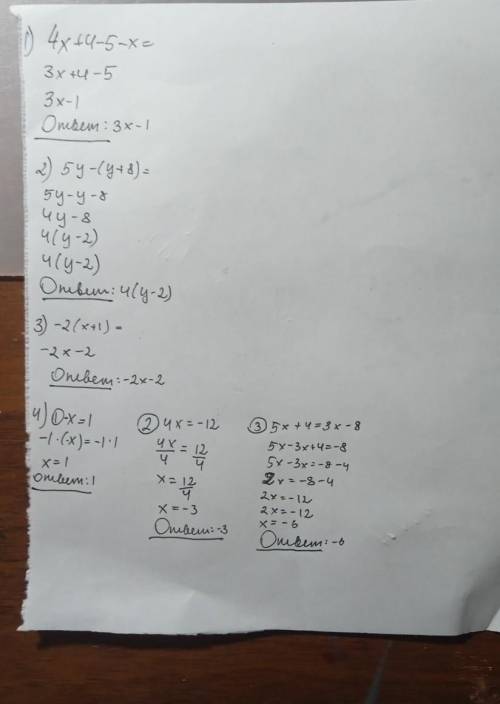 1) 4x+4-5-x=
3x+4-5
3x-1
Ответ: 3x-1
2) 5y-(y+8)=
5y-y-8
4y-8
4(y-2)
4(y-2)
Ответ: 4(y-2)
3) -2(x+1)=
-2x-2
Ответ: -2x-2
4) ① -x=1
-1·(-x)=-1·1
x=1
Ответ: 1
② 4x=-12
4x/4=12/4
x=12/4
x=-3
Ответ: -3
③ 5x+4=3x-8
5x-3x+4=-8
5x-3x=-8-4
2x=-8-4
2x=-12
2x=-12
x=-6
Ответ: -6